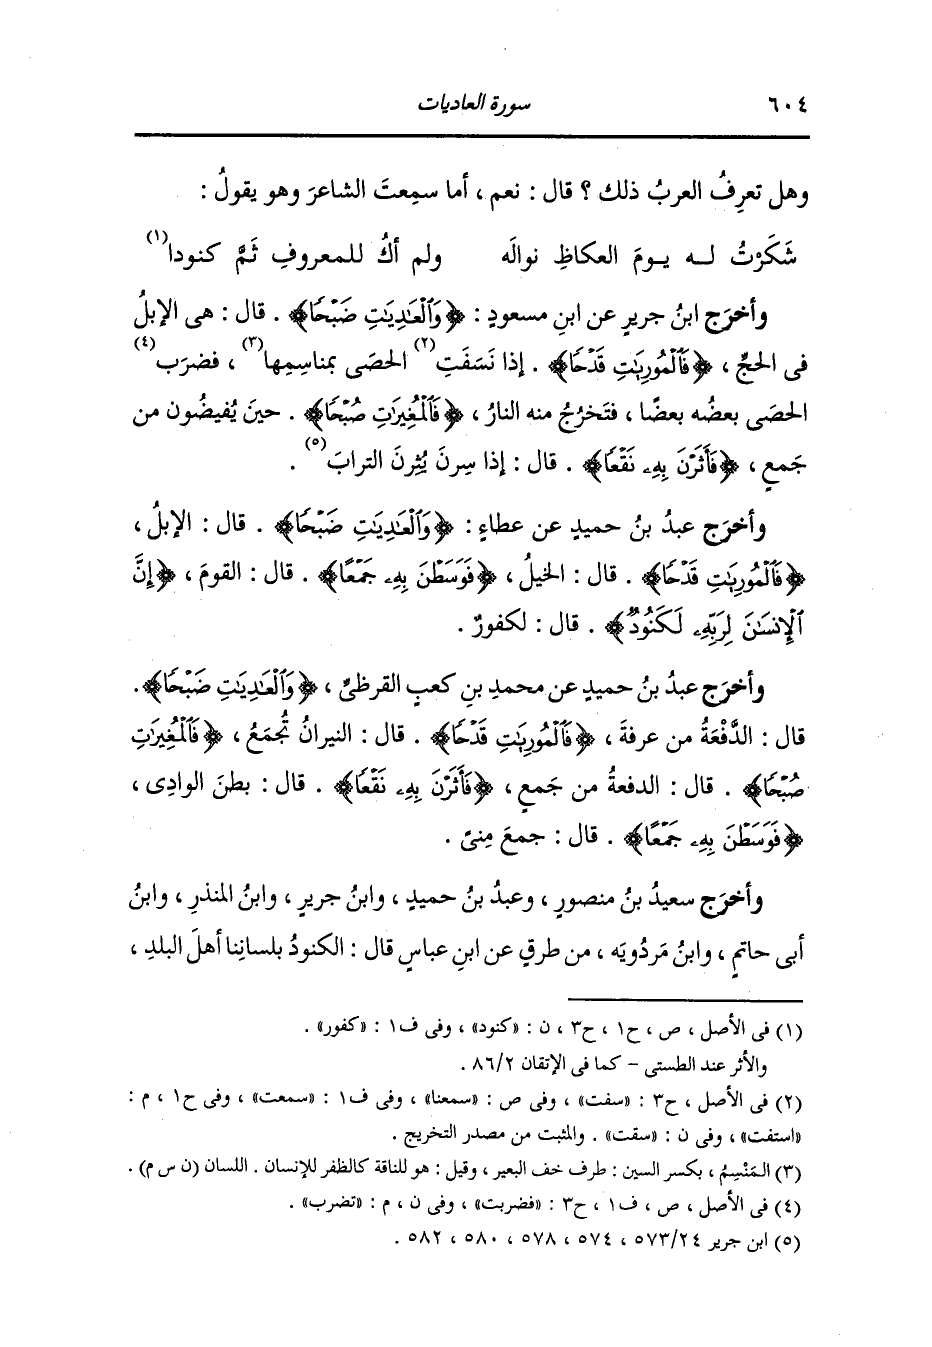 ٦٠٤ سورة العاديات
وهل تعرِفُ العربُ ذلك ؟ قال : نعم ، أما سمِعتَ الشاعرَ وهو يقولُ :
شَكَرْتُ لــه يــومَ العكاظِ نوالَه ولم أكُ للمعروفِ ثَمَّ كنودا(١)
وأخرَج ابنُ جريرٍ عن ابنِ مسعودٍ : ﴿وَٱلْعَٰدِيَٰتِ ضَبْحًا﴾ . قال : هى الإبلُ
فى الحجِّ ، ﴿فَٱلْمُورِيَٰتِ قَدْحًا﴾ . إذا نَسَفَتِ(٢) الحصَى بمناسِمِها(٣) ، فضرَب(٤)
الحصَى بعضُه بعضًا ، فتَخرُجُ منه النارُ ، ﴿فَٱلْمُغِيرَٰتِ صُبْحًا﴾ . حينَ يُفيضُون من
جَمعٍ ، ﴿فَأَثَرْنَ بِهِۦ نَقْعًا﴾ . قال : إذا سِرنَ يُثِرنَ الترابَ(٥) .
وأخرَج عبدُ بنُ حميدٍ عن عطاءٍ : ﴿وَٱلْعَٰدِيَٰتِ ضَبْحًا﴾ . قال : الإبلُ ،
﴿فَٱلْمُورِيَٰتِ قَدْحًا﴾ . قال : الخيلُ ، ﴿فَوَسَطْنَ بِهِۦ جَمْعًا﴾ . قال : القومَ ، ﴿إِنَّ
ٱلْإِنسَٰنَ لِرَبِّهِۦ لَكَنُودٌ﴾ . قال : لكفورٌ .
وأخرَج عبدُ بنُ حميدٍ عن محمدِ بنِ كعبٍ القرظىِّ ، ﴿وَٱلْعَٰدِيَٰتِ ضَبْحًا﴾ .
قال : الدَّفْعَةُ من عرفةَ ، ﴿فَٱلْمُورِيَٰتِ قَدْحًا﴾ . قال : النيرانُ تُجمَعُ ، ﴿فَٱلْمُغِيرَٰتِ
صُبْحًا﴾ . قال : الدفعةُ من جَمعٍ ، ﴿فَأَثَرْنَ بِهِۦ نَقْعًا﴾ . قال : بطنَ الوادِى ،
﴿فَوَسَطْنَ بِهِۦ جَمْعًا﴾ . قال : جمعَ مِنىً .
وأخرَج سعيدُ بنُ منصورٍ ، وعبدُ بنُ حميدٍ ، وابنُ جريرٍ ، وابنُ المنذرِ ، وابنُ
أبى حاتمٍ ، وابنُ مَردُويَه ، من طرقٍ عن ابنِ عباسٍ قال : الكنودُ بلسانِنا أهلَ البلدِ ،
(١) فى الأصل ، ص ، ح١ ، ح٣ ، ن : «كنود» ، وفى ف١ : «كفور» .
والأثر عند الطستى – كما فى الإتقان ٨٦/٢ .
(٢) فى الأصل ، ح٣ : «سفت» ، وفى ص : «سمعنا» ، وفى ف١ : «سمعت» ، وفى ح١ ، م :
«استفت» ، وفى ن : «سقت» . والمثبت من مصدر التخريج .
(٣) المَنْسِمُ ، بكسر السين : طرف خف البعير ، وقيل : هو للناقة كالظفر للإنسان . اللسان (ن س م) .
(٤) فى الأصل ، ص ، ف١ ، ح٣ : «فضربت» ، وفى ن ، م : «تضرب» .
(٥) ابن جرير ٥٧٣/٢٤ ، ٥٧٤ ، ٥٧٨ ، ٥٨٠ ، ٥٨٢ .